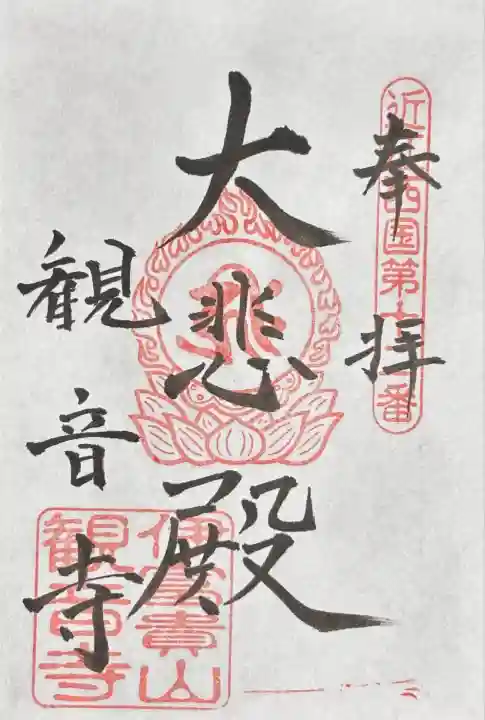 近江西国第十 番
奉拝
大悲殿
観音寺
伊富貴山
観音寺